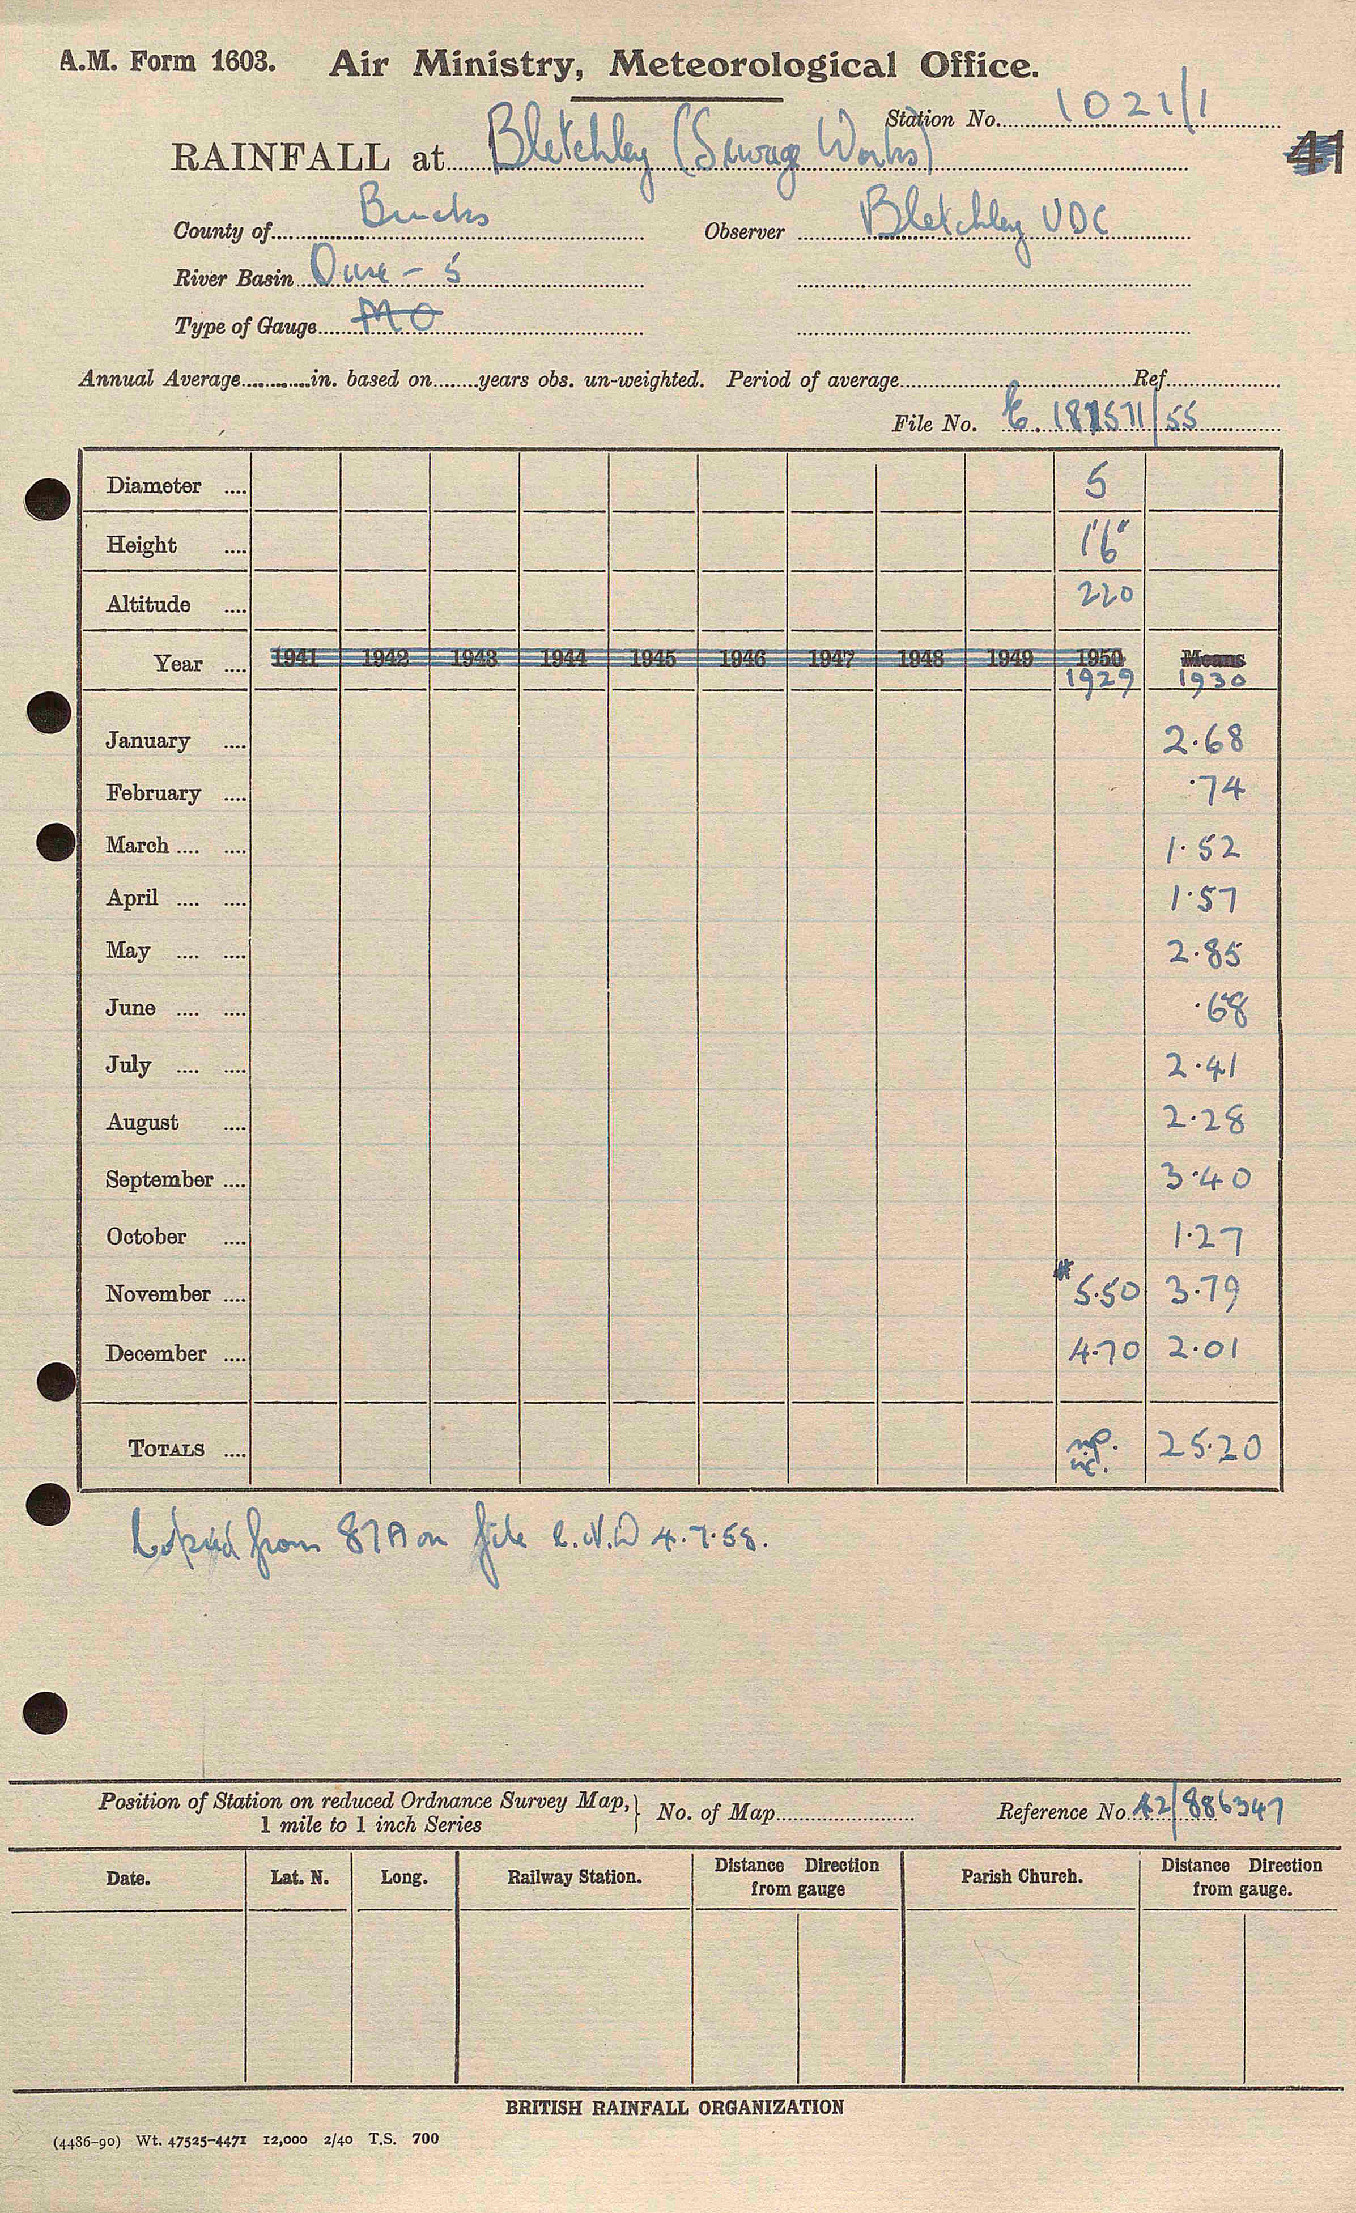 A.M. Form 1603. Air Ministry, Meteorological Office.
Station No. 1021/1
RAINFALL at Bletchley (Sewage Works)
41
County of Bucks Observer Bletchley UDC
River Basin Ouse - 5
Type of Gauge MO
Annual Average in. based on years obs. un-weighted. Period of average Ref.
File No. /55
Diameter .... 5
Height .... 1'6"
Altitude .... 220
Year .... 1941 1942 1943 1944 1945 1946 1947 1948 1949 1950 Means
1929 1930
January .... 2.68
February .... .74
March .... .... 1.52
April .... .... 1.57
May .... .... 2.85
June .... .... .68
July .... .... 2.41
August .... 2.28
September .... 3.40
October .... 1.27
November .... 5.50 3.79
December .... 4.70 2.01
TOTALS .... 25.20
Copied from 87A on file 4.7.58.
Position of Station on reduced Ordnance Survey Map, } No. of Map Reference No. 42/886347
1 mile to 1 inch Series
Date. Lat. N. Long. Railway Station. Distance Direction from gauge Parish Church. Distance Direction from gauge.
BRITISH RAINFALL ORGANIZATION
(4486-90) Wt. 47525-4471 12,000 2/40 T.S. 700